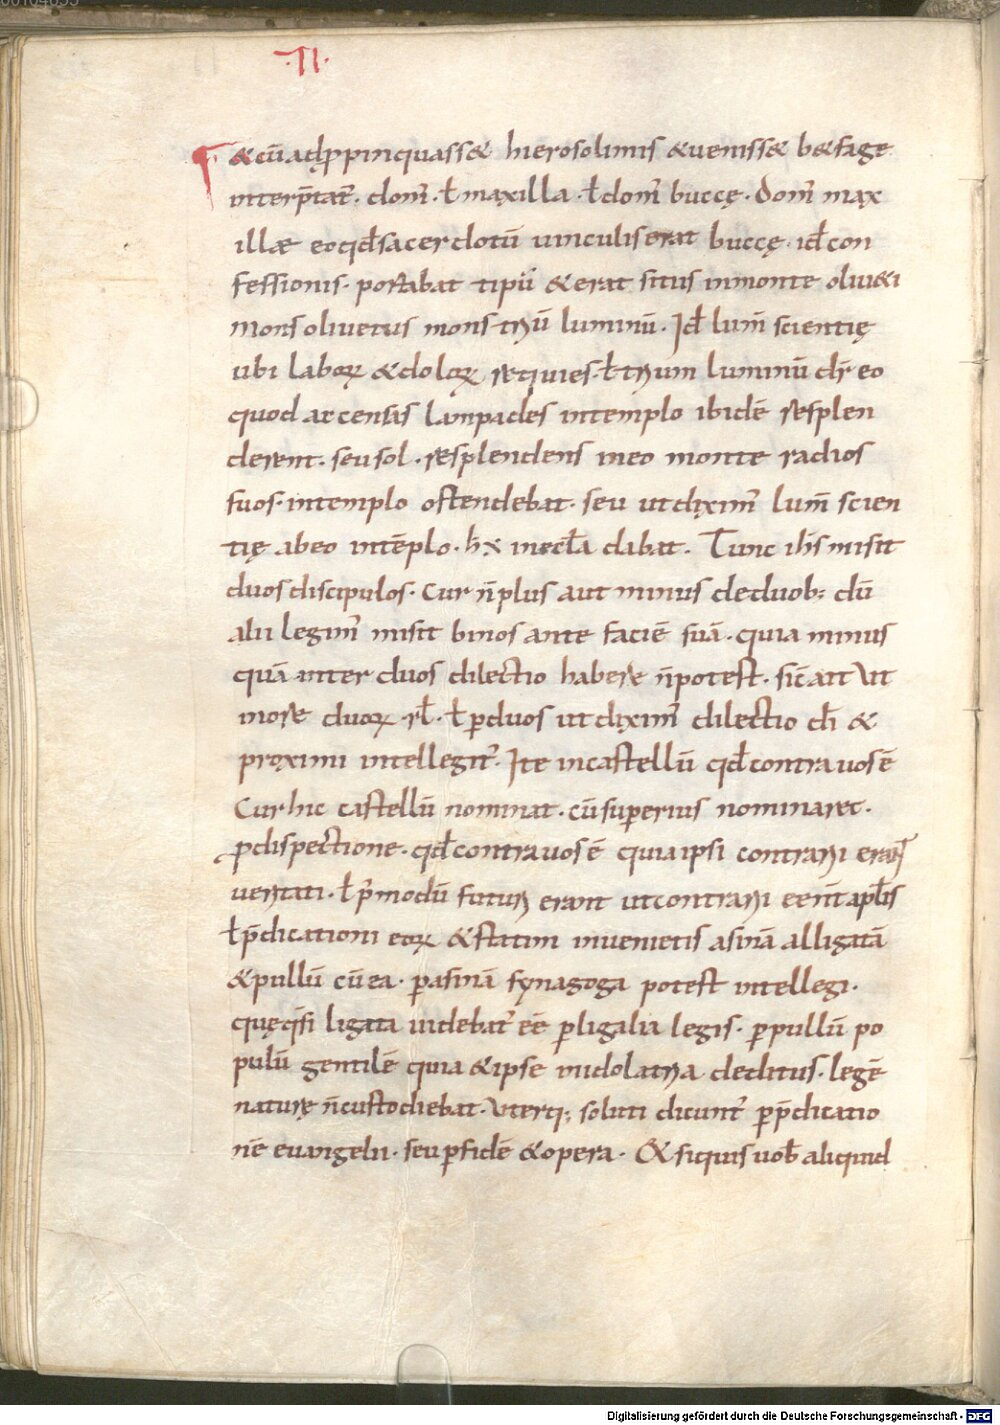 ·II·
&cū adp̱ropinquass& hierosolimis &uenisse b&fage
interp̄tat̄. dom̄. ł maxilla. ł dom̄ buccę. Dom̄ max
illæ eo qđ sacerdotū uinculis erat buccę. iđ con
fessionis. portabat tipū &erat situs inmonte oliu&i
Mons oliuetus mons triū luminū. Iđ lum̄ scientię
ubi laborꝝ &dolorꝝ requies. ł trium luminū dr̄ eo
quod arcensis lampades intemplo ibidē resplen
derent. seu sol. resplendens ineo monte radios
suos. intemplo ostendebat. seu utdixim̄ lum̄ scien
tię abeo intēplo. hx inecl̄a dabat. Tunc ih̄s misit
duos discipulos. Cur n̄ plus aut minus deduob; dū
alii legim̄ misit binos ante faciē suā. quia minus
quā inter duos dilectio habere n̄ potest. sic̄ ait Ut
more duorꝝ rł. ł ꝑduos utdixim̄ dilectio dī &
proximi intellegit̄. Ite incastellū qđ contra uos ē
Cur hic castellū nominat. cū superius nominaret.
ꝑdispectione. qđ contra uos ē quia ipsi contrarii erant
ueritati. ł p̄modū futuri erant utcontrarii eent̄ apl̄is
ł p̄dicationi eorꝝ &statim inuenietis asinā alligatā
&pullū cū ea. ꝑasinā synagoga potest intellegi.
quę q̄si ligata uidebat̄ eē ꝑligalia legis. ꝑpullū po
pulū gentilē quia &ipse inidolatria deditus. legē
naturę n̄ custodiebat. Uterq; soluti dicunt̄ ꝑp̄dicatio
nē euangelii. seu ꝑfidē &opera. &siquis uob̄ aliquid
Digitalisierung gefördert durch die Deutsche Forschungsgemeinschaft - DFG